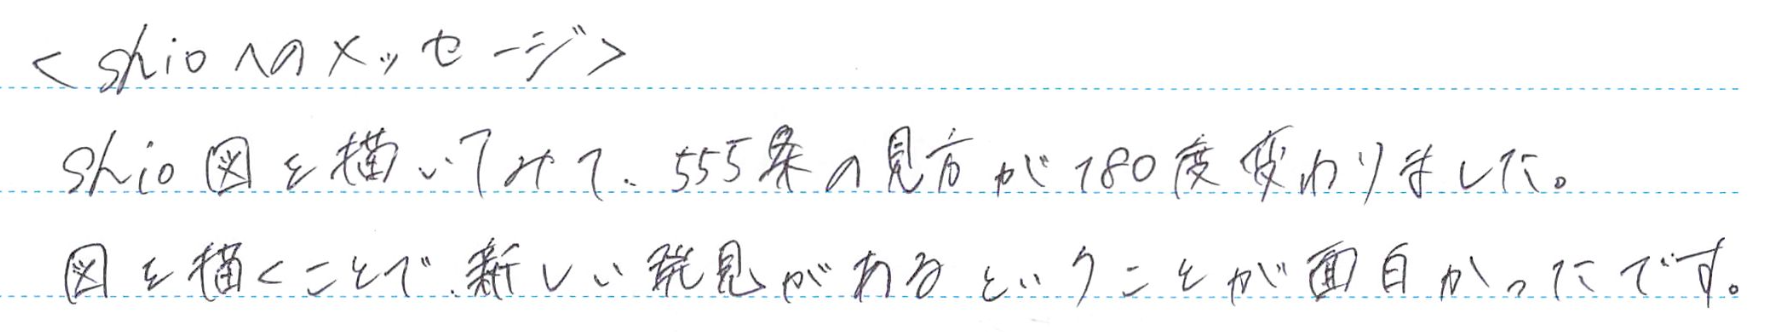 <shioへのメッセージ>
shio図を描いてみて、555条の見方が180度変わりました。
図を描くことで、新しい発見があるということが面白かったです。